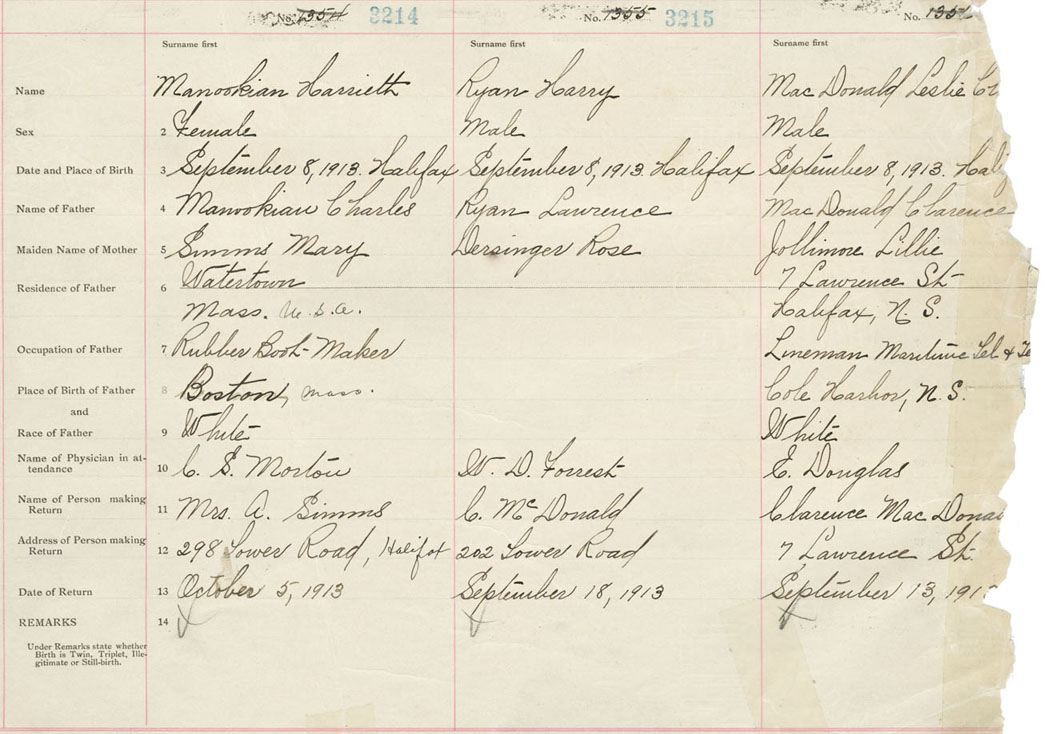 No. 1354 3214 No. 1355 3215 No.
Surname first Surname first Surname first
Name Manookian Harrieth Ryan Harry Mac Donald Leslie
Sex 2 Female Male Male
Date and Place of Birth 3 September 8, 1913. Halifax September 8, 1913. Halifax September 8, 1913. Hal
Name of Father 4 Manookian Charles Ryan Lawrence Mac Donald Clarence
Maiden Name of Mother 5 Simms Mary Dersinger Rose Jollimore Lillie
Residence of Father 6 Watertown 7 Lawrence St
Mass. U.S.A. Halifax, N.S.
Occupation of Father 7 Rubber Boot-Maker Lineman Maritime Tel & Te
Place of Birth of Father 8 Boston, Mass. Cole Harbor, N.S.
and
Race of Father 9 White White
Name of Physician in at-
tendance 10 C. S. Morton W. D. Forrest E. Douglas
Name of Person making
Return 11 Mrs. A. Simms C. McDonald Clarence Mac Dona
Address of Person making
Return 12 298 Tower Road, Halifax 202 Tower Road 7 Lawrence St.
Date of Return 13 October 5, 1913 September 18, 1913 September 13, 191
REMARKS 14
Under Remarks state whether
Birth is Twin, Triplet, Ille-
gitimate or Still-birth.